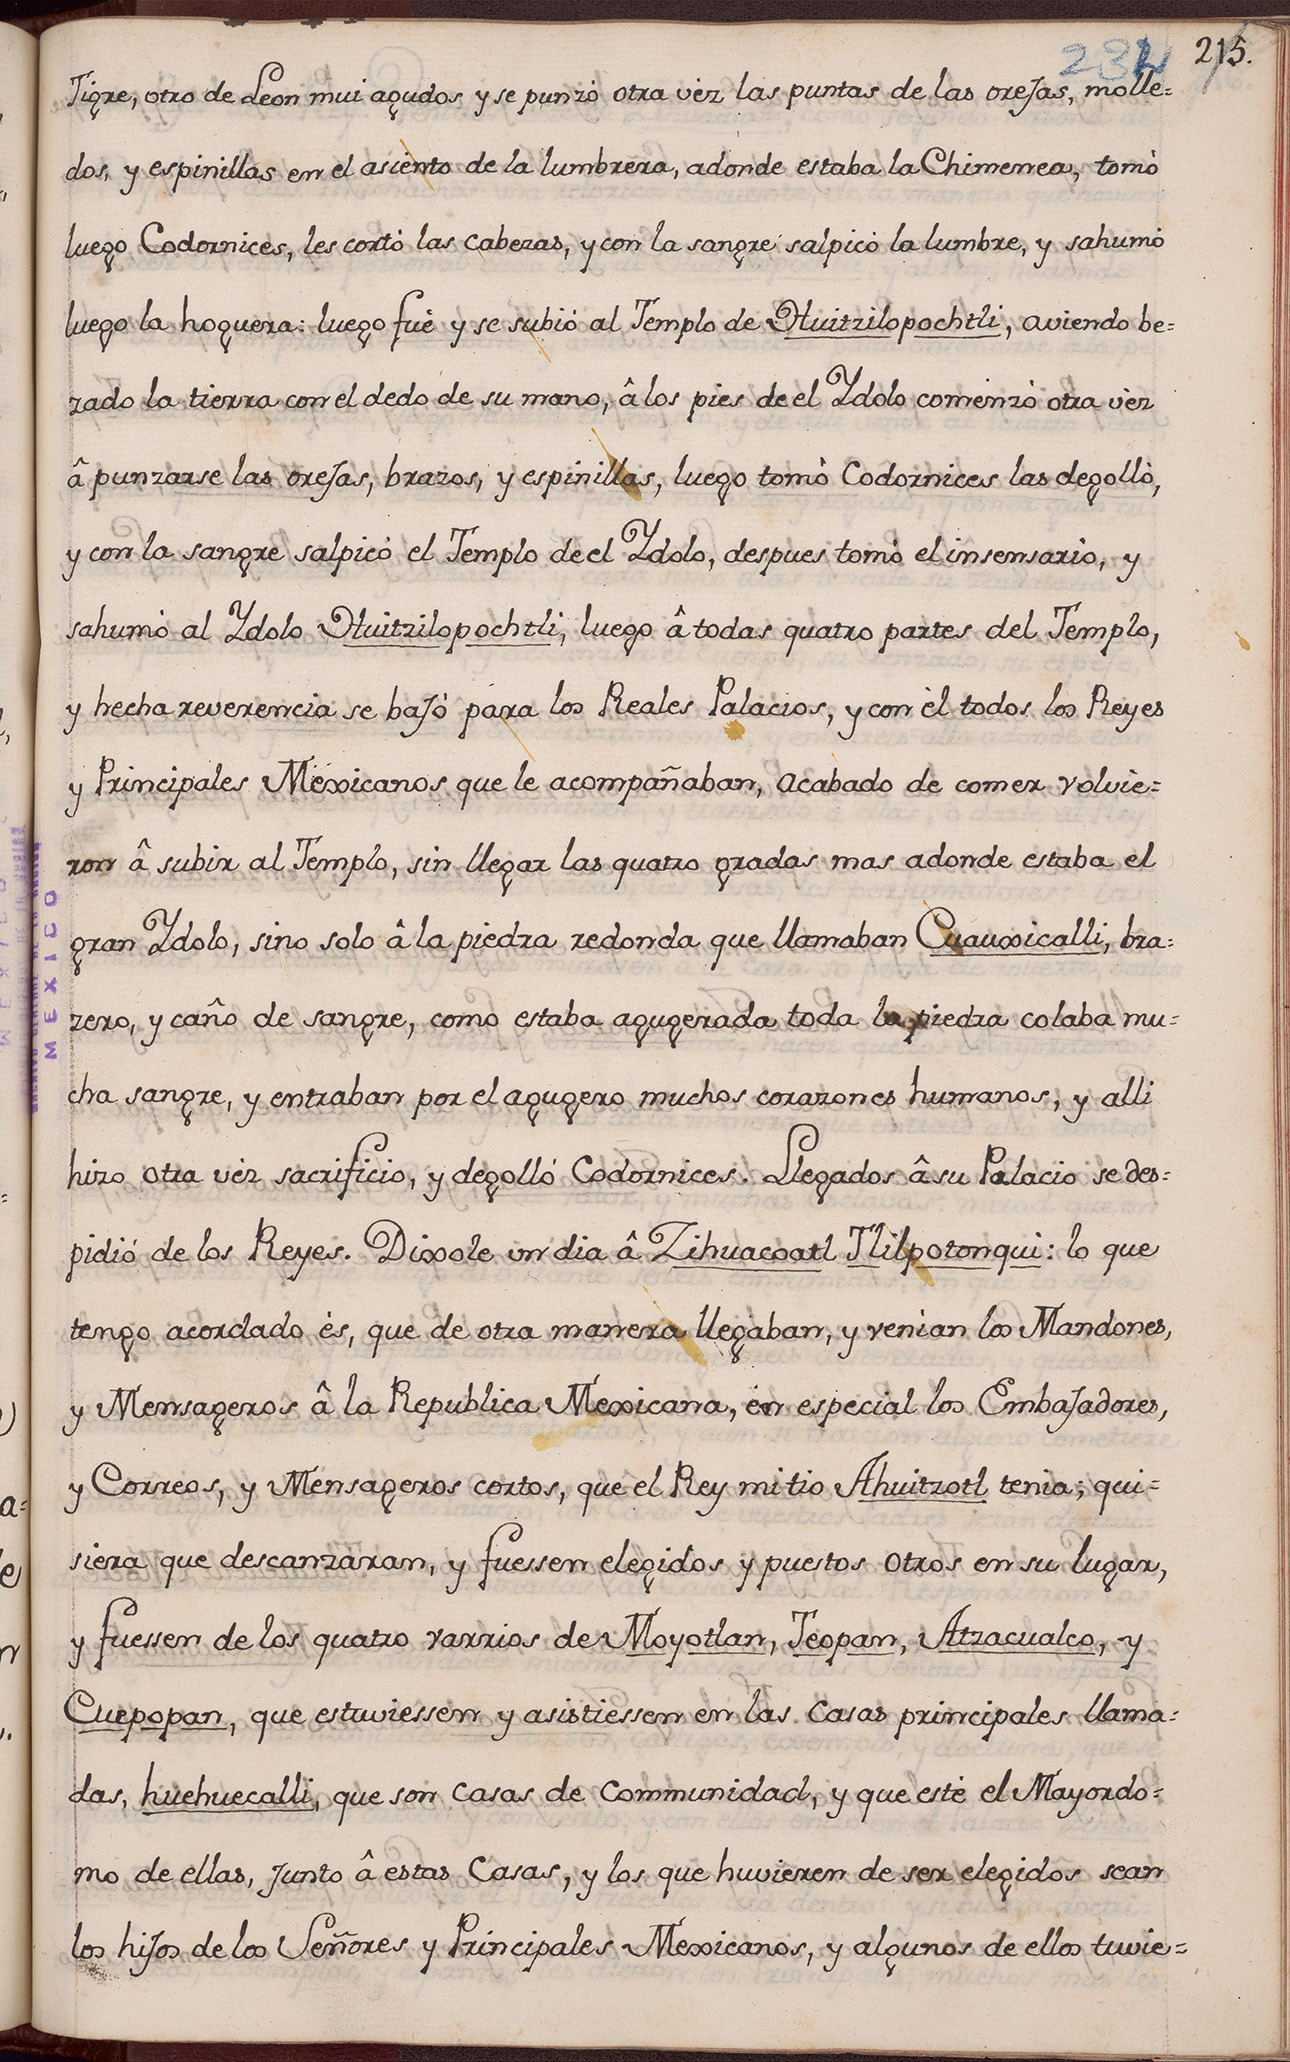 234 215.
Tigre, otro de Leon mui agudos y se punzò otra vèz las puntas de las oreJas, molle=
dos, y espinillas en el asiento de la lumbrera, adonde estaba la Chimenea, tomò
luego Codornices, les cortò las cabezas, y con la sangre salpicò la lumbre, y sahumò
luego la hoguera: luego fuè y se subiò al Templo de Huitzilopochtli, aviendo be=
zado la tierra con el dedo de su mano, â los pies de el Ydolo comenzò otra vèz
â punzarse las oreJas, brazos, y espinillas, luego tomò Codornices las degollò,
y con la sangre salpicò el Templo de el Ydolo, despues tomò el insensario, y
sahumò al Ydolo Huitzilopochtli, luego â todas quatro partes del Templo,
y hecha reverencia se baJò para los Reales Palacios, y con èl todos los Reyes
y Principales Mexicanos que le acompañaban, acabado de comer volvie=
ron â subir al Templo, sin llegar las quatro gradas mas adonde estaba el
gran Ydolo, sino solo â la piedra redonda que llamaban Cuauxicalli, bra=
zero, y caño de sangre, como estaba agugerada toda la piedra colaba mu=
cha sangre, y entraban por el agugero muchos corazones humanos, y alli
hizo otra vèz sacrificio, y degollò Codornices. Llegados â su Palacio se des=
pidiò de los Reyes. Dixole un dia â Zihuacoatl Tlilpotonqui: lo que
tengo acordado ès, que de otra manera llegaban, y venian los Mandones,
y Mensageros â la Republica Mexicana, en especial los EmbaJadores,
y Correos, y Mensageros cortos, que el Rey mi tio Ahuitzotl tenia; qui=
siera que descanzaran, y fuessen elegidos y puestos otros en su lugar,
y fuessen de los quatro varrios de Moyotlan, Teopan, Atzacualco, y
Cuepopan, que estuviessen y asistiessen en las Casas principales llama=
das, huehuecalli, que son Casas de Communidad, y que estè el Mayordo=
mo de ellas, Junto â estas Casas, y los que huvieren de ser elegidos sean
los hiJos de los Señores y Principales Mexicanos, y algunos de ellos tuvie=
MEXICO